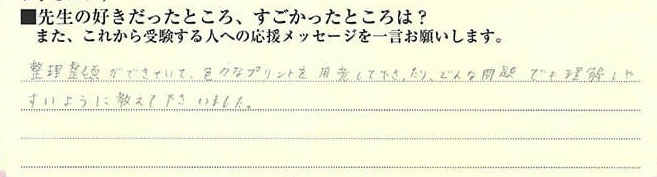 ■先生の好きだったところ、すごかったところは？
また、これから受験する人への応援メッセージを一言お願いします。
整理整頓ができていて、色々なプリントを用意して下さったり、どんな問題でも理解しや
すいように教えて下さいました。